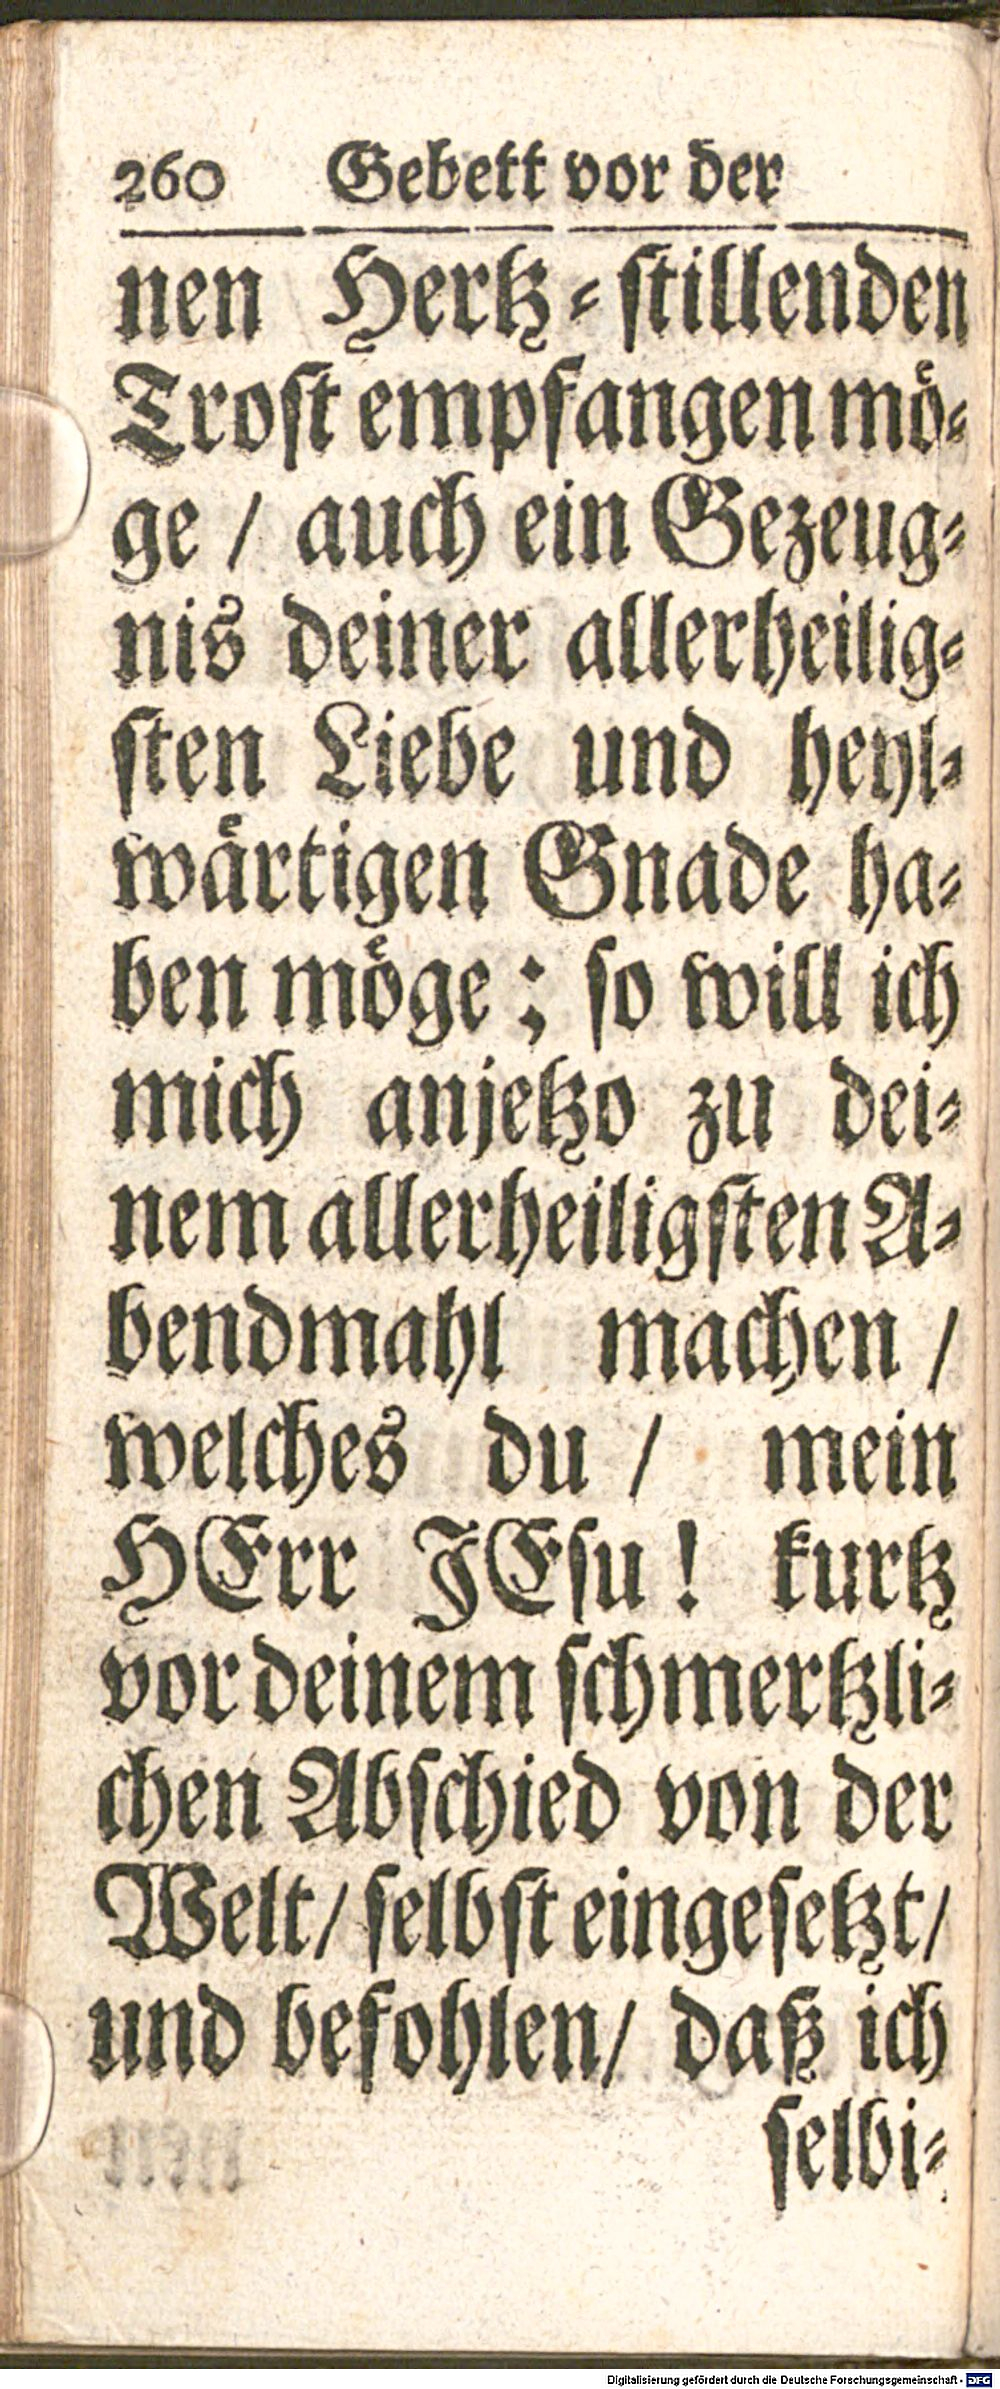 260 Gebett vor der
nen Hertz-stillenden
Trost empfangen mö-
ge / auch ein Gezeug-
nis deiner allerheilig-
sten Liebe und heyl-
wärtigen Gnade ha-
ben möge; so will ich
mich anjetzo zu dei-
nem allerheiligsten A-
bendmahl machen /
welches du / mein
HErr JEsu! kurtz
vor deinem schmertzli-
chen Abschied von der
Welt / selbst eingesetzt /
und befohlen / daß ich
selbi-
Digitalisierung gefördert durch die Deutsche Forschungsgemeinschaft - DFG